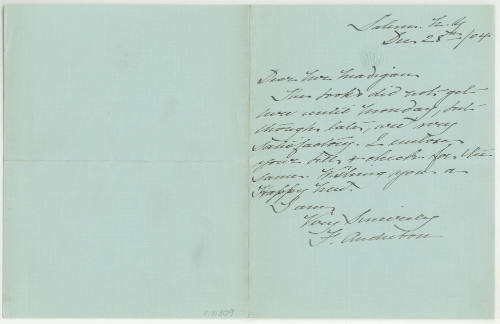 Salem. N. Y
Dec 28th/04
Dear Mr Madigan
The books did not get
here until Monday, but
though late, were very
satisfactory. I enclose
your bill & check for the
same. Wishing you a
Happy New.
I am
Very Sincerely
F. Audubon